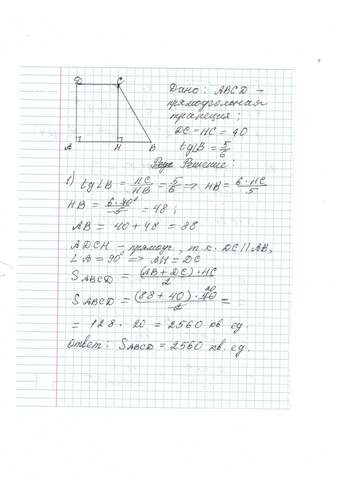 D C
A H B
Дано: ABCD –
прямоугольная
трапеция;
DC = HC = 40
tg∠B = 5/6
Решение:
1) tg∠B = HC/HB = 5/6 ⇒ HB = 6·HC/5
HB = 6·40/5 = 48;
AB = 40 + 48 = 88
ADCH – прямоуг., т.к. DC || AB,
∠A = 90° ⇒ AH = DC
SABCD = (AB + DC)·HC/2
SABCD = (88 + 40)·40/2 =
= 128 · 20 = 2560 кв. ед.
Ответ: SABCD = 2560 кв. ед.